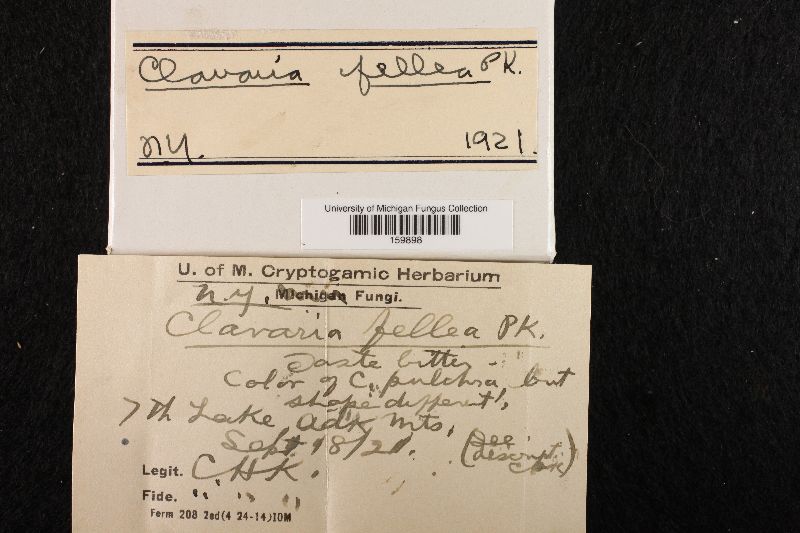 Clavaria fellea PK.
N.Y. 1921.
University of Michigan Fungus Collection
159898
U. of M. Cryptogamic Herbarium
N.Y. Michigan Fungi.
Clavaria fellea PK.
Taste bitter -
Color of C. pulchra but
shape different,
7th Lake Adk Mts,
Sept 18/21. (See descript. CHK)
Legit. C.H.K.
Fide. " " "
Form 208 2ed(4 24-14)10M